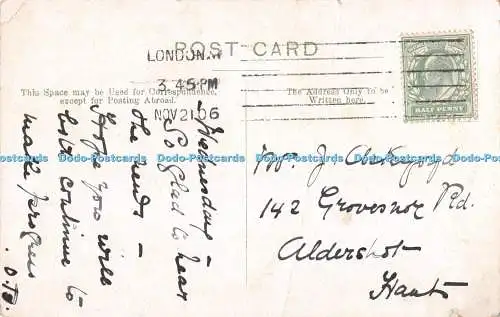 POST CARD
LONDON.W
3 45 PM
NOV 21 06
HALF PENNY
This Space may be Used for Correspondence,
except for Posting Abroad.
The Address Only to be
Written here.
Wednesday –
So glad to hear
the news –
Hope you will
both continue to
make progress
Mr. J.
142 Grosvenor Rd.
Aldershot
Hants
Dodo-Postcards Dodo-Postcards Dodo-Postcards Dodo-Postcards Dodo-Postcards Dodo-Postcards
Dodo-Postcards Dodo-Postcards Dodo-Postcards Dodo-Postcards Dodo-Postcards Dodo-Postcards